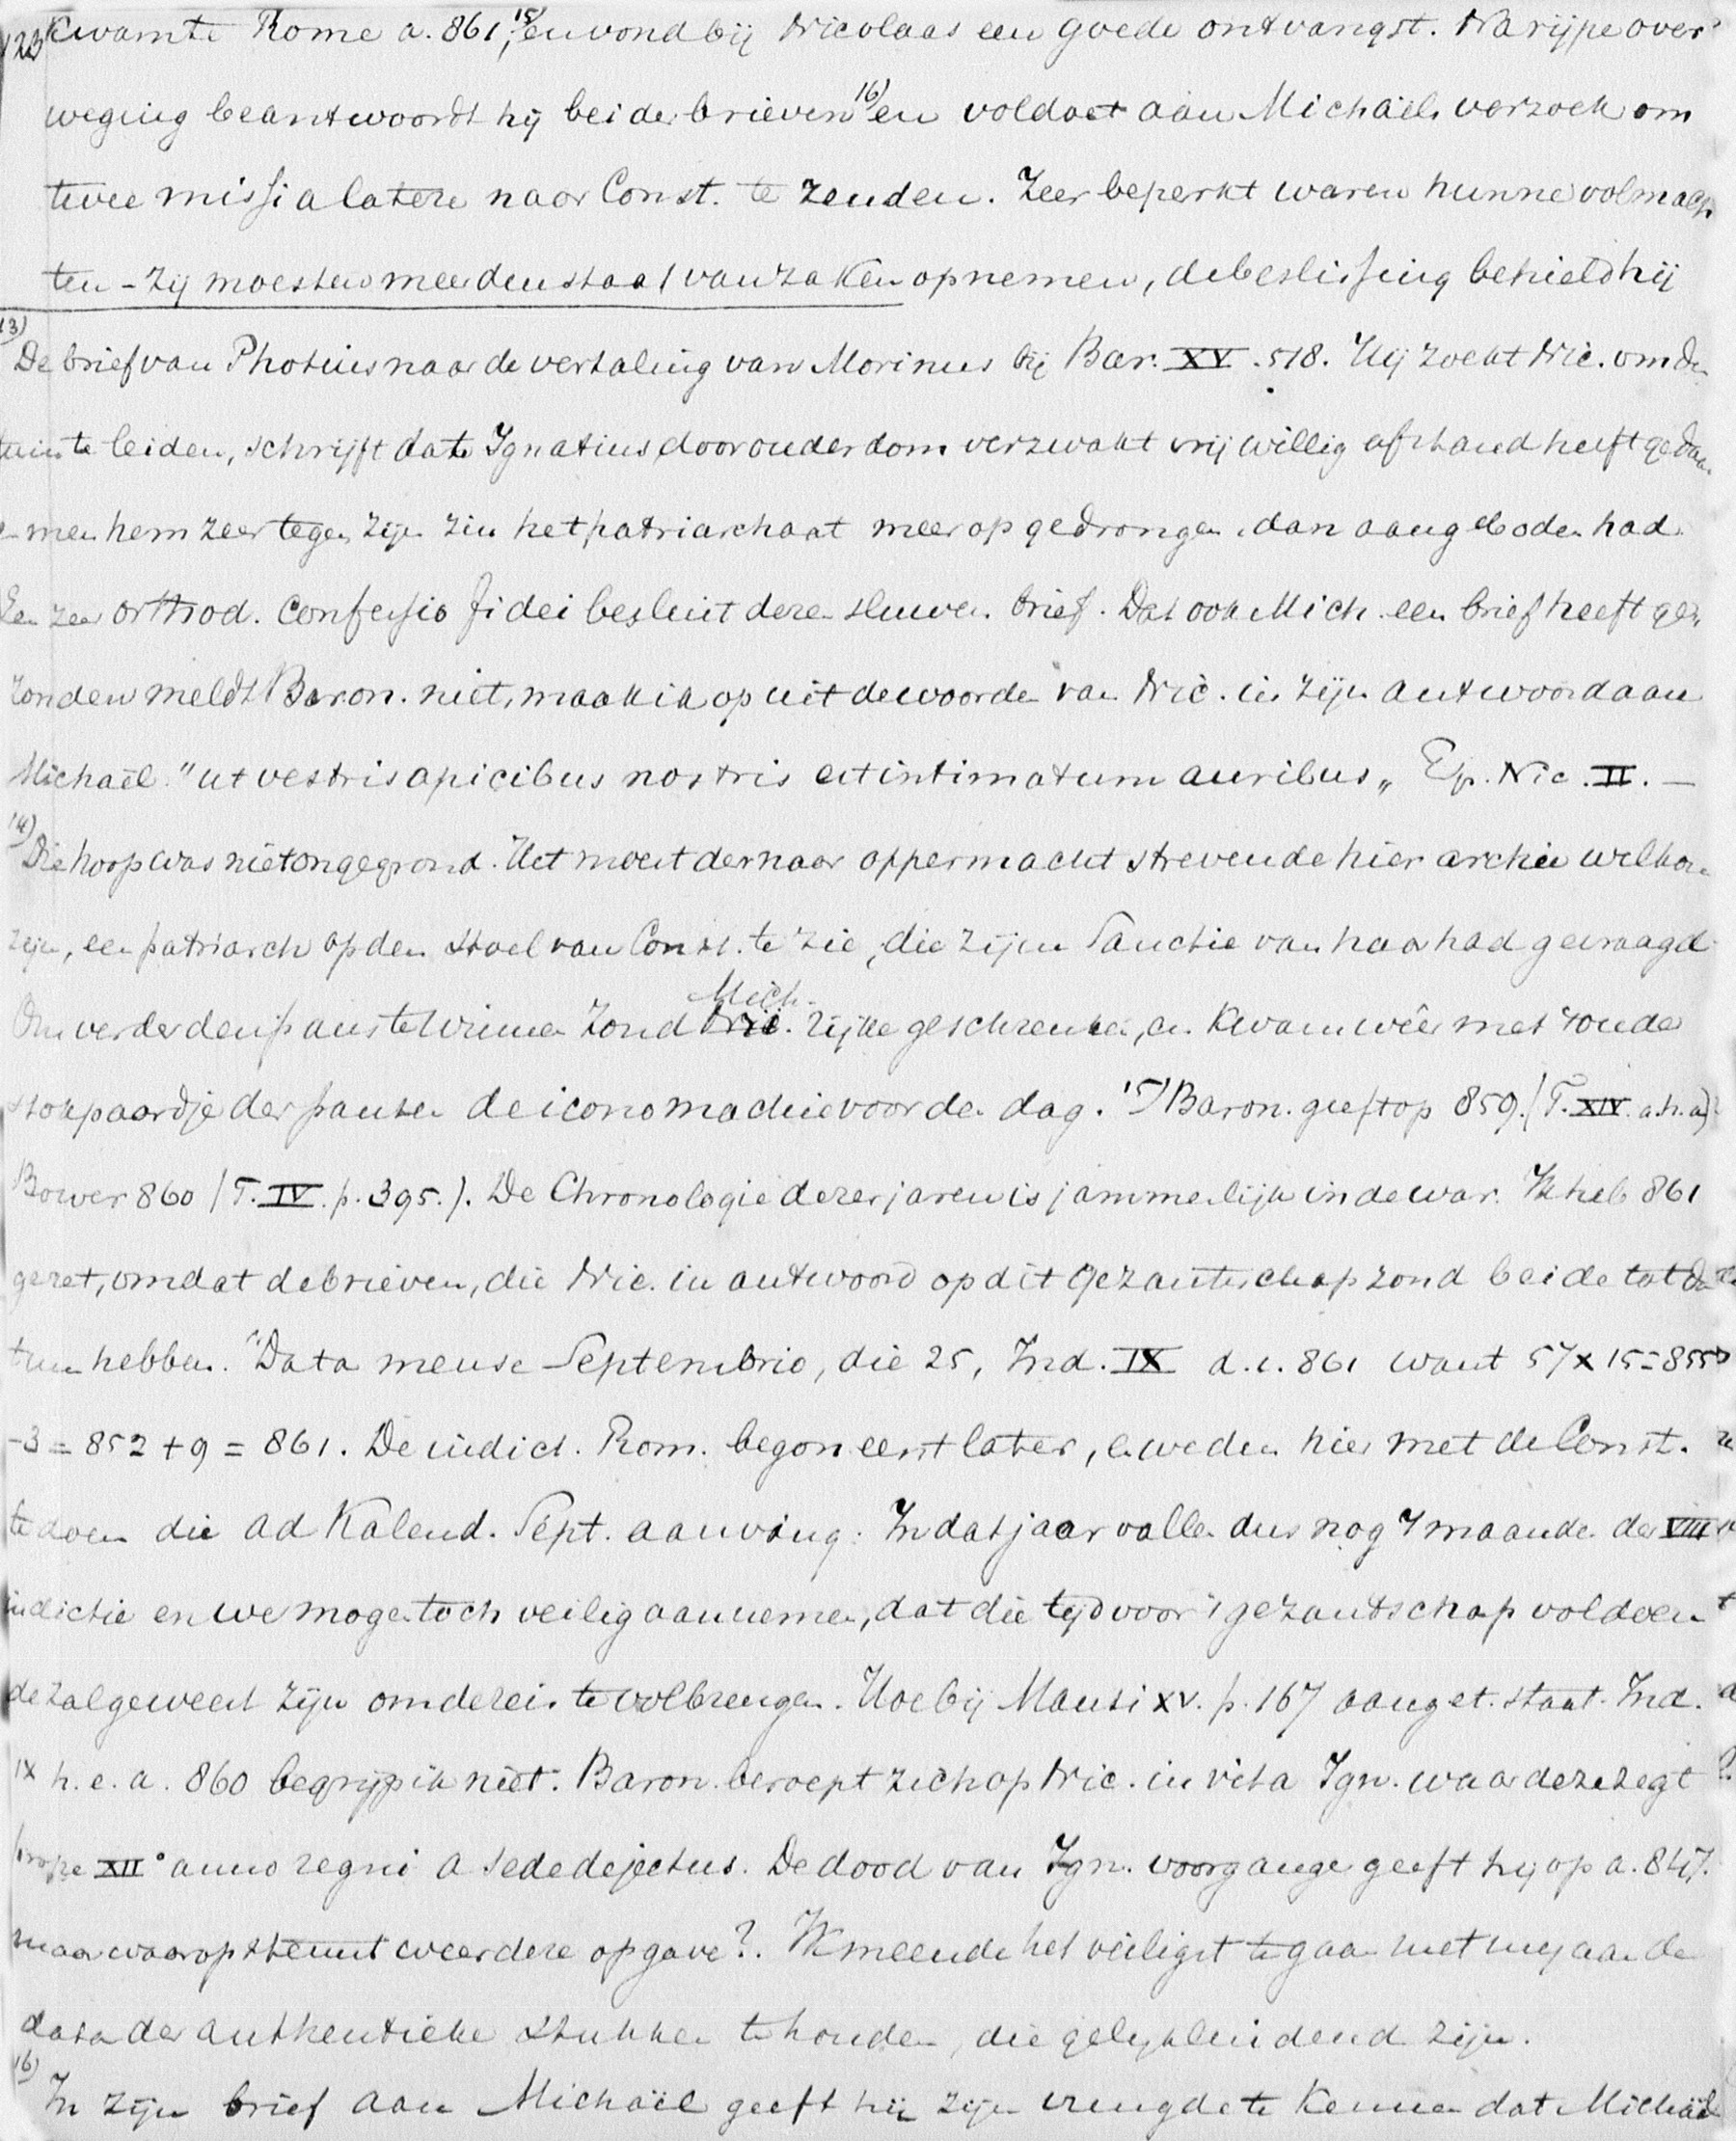 123 kwam te Rome a. 861,15) en vond bij Nicolaas een goede ontvangst. Na rijpe over
weging beantwoordt hij beide brieven16) en voldoet aan Michaëls verzoek om
twee missi a latere naar Const. te zenden. Zeer beperkt waren hunne volmach
ten - zij moesten meer den staat van zaken opnemen, de beslissing behield hij
13) De brief van Photius naar de vertaling van Morinus bij Bar. XV. 518. Hij zoekt Nic. om den
tuin te leiden, schrijft dat Ignatius door ouderdom verzwakt vrijwillig afstand heeft gedaan
men hem zeer tegen zijn zin het patriarchaat meer opgedrongen dan aangeboden had.
Een zeer orthod. confessio fidei besluit dezen sluwen brief. Dat ook Mich. een brief heeft ge-
zonden meldt Baron. niet, maak ik op uit de woorden van Nic. in zijn antwoord aan
Michaël "ut vestris apicibus nostris est intimatum auribus„ Ep. Nic. II. —
14) Die hoop was niet ongegrond. Het moest der naar oppermacht strevende hierarchie welkom
zijn, een patriarch op den stoel van Const. te zien, die zijn Sanctie van haar had gevraagd
Om verder den paus te winnen zond Mich. rijke geschenken, en kwam wêer met 't oude
stokpaardje der pausen de iconomachie voor den dag. 15) Baron. geeft op 859. (T. XIV. a.h.a)
Bower 860 (T. IV. p. 395.). De Chronologie dezer jaren is jammerlijk in de war. Ik heb 861
gezet, omdat de brieven, die Nic. in antwoord op dit gezantschap zond beide tot da
tum hebben. "Data mense Septembrio, die 25, Ind. IX d.i. 861 want 57 x 15 = 855
-3 = 852 + 9 = 861. De indict. Rom. begon eerst later, we hier met de Const.
te doen die ad Kalend. Sept. aanving. In dat jaar vallen dus nog 4 maanden der VIII
indictie en we mogen toch veilig aannemen, dat die tijd voor 't gezantschap voldoen
de zal geweest zijn om de reis te volbrengen. Hoe bij Mansi XV. p. 167 aanget. staat. Ind.
IX h.e.a. 860 begrijp ik niet. Baron. beroept zich op Nic. in vita Ign. waar deze zegt
prope XII° anno regni a sede dejectus. De dood van Ign. voorganger geeft hij op a. 847.
maar waarop steunt weer deze opgave?. Ik meende het veiligst te gaan met mij aan de
data der authentieke stukken te houden, die gelijkluidend zijn.
16) In zijn brief aan Michaël geeft hij zijn vreugde te kennen dat Michaël